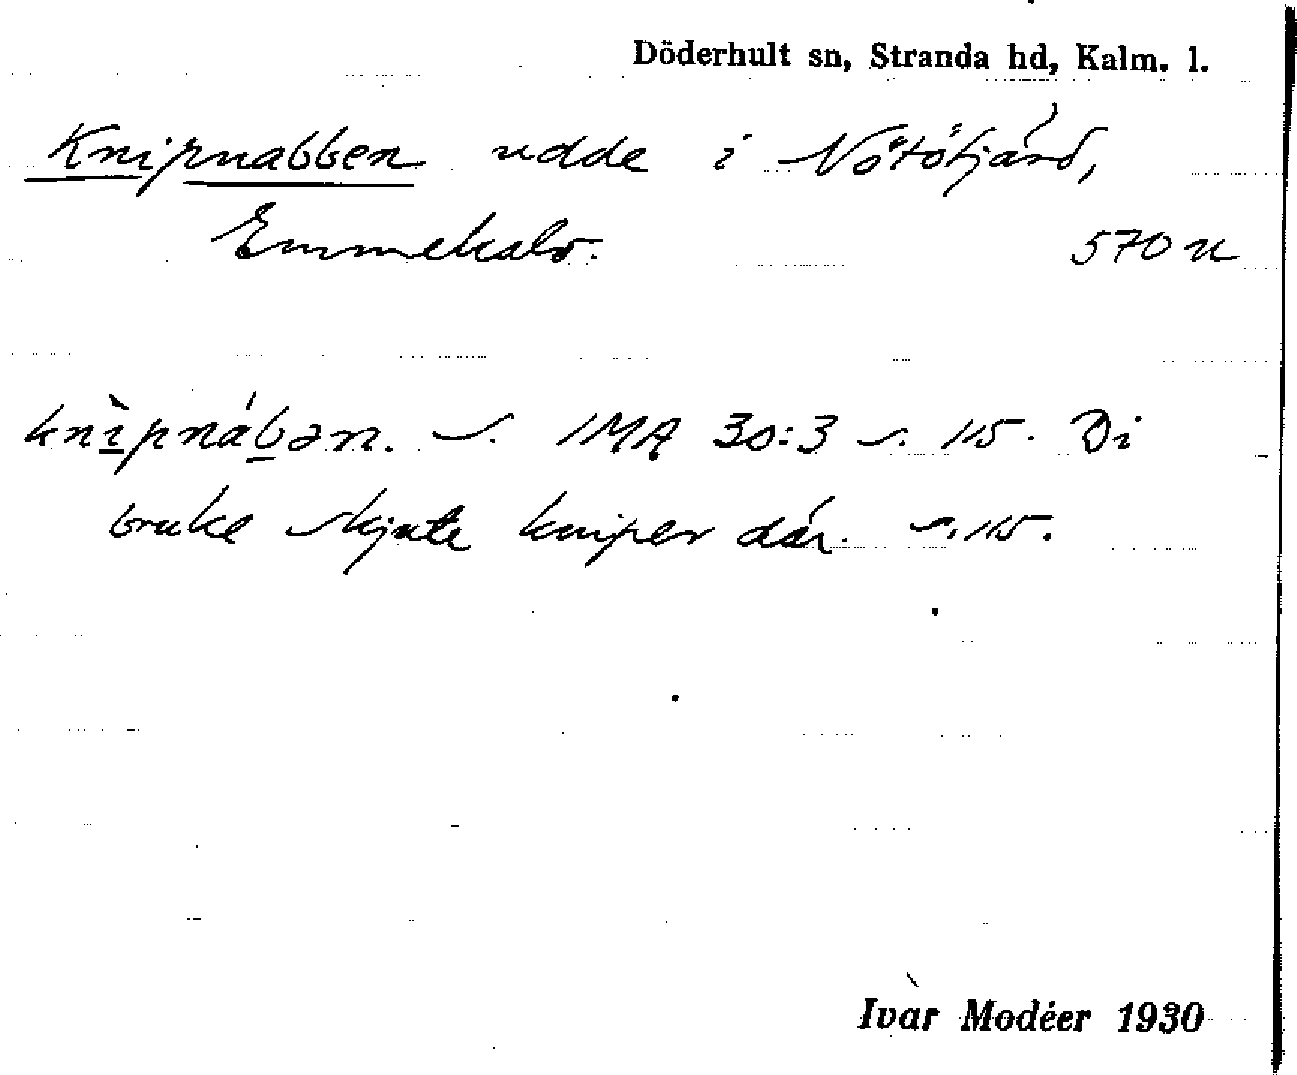 Döderhult sn, Stranda hd, Kalm. l.
Knipnabben udde i Nötöfjärd,
Emmekalv. 570 u
knìpnábən. s. IMA 30:3 s. 115. Di
bruke skjute kniper där. s. 115.
Ivar Modéer 1930